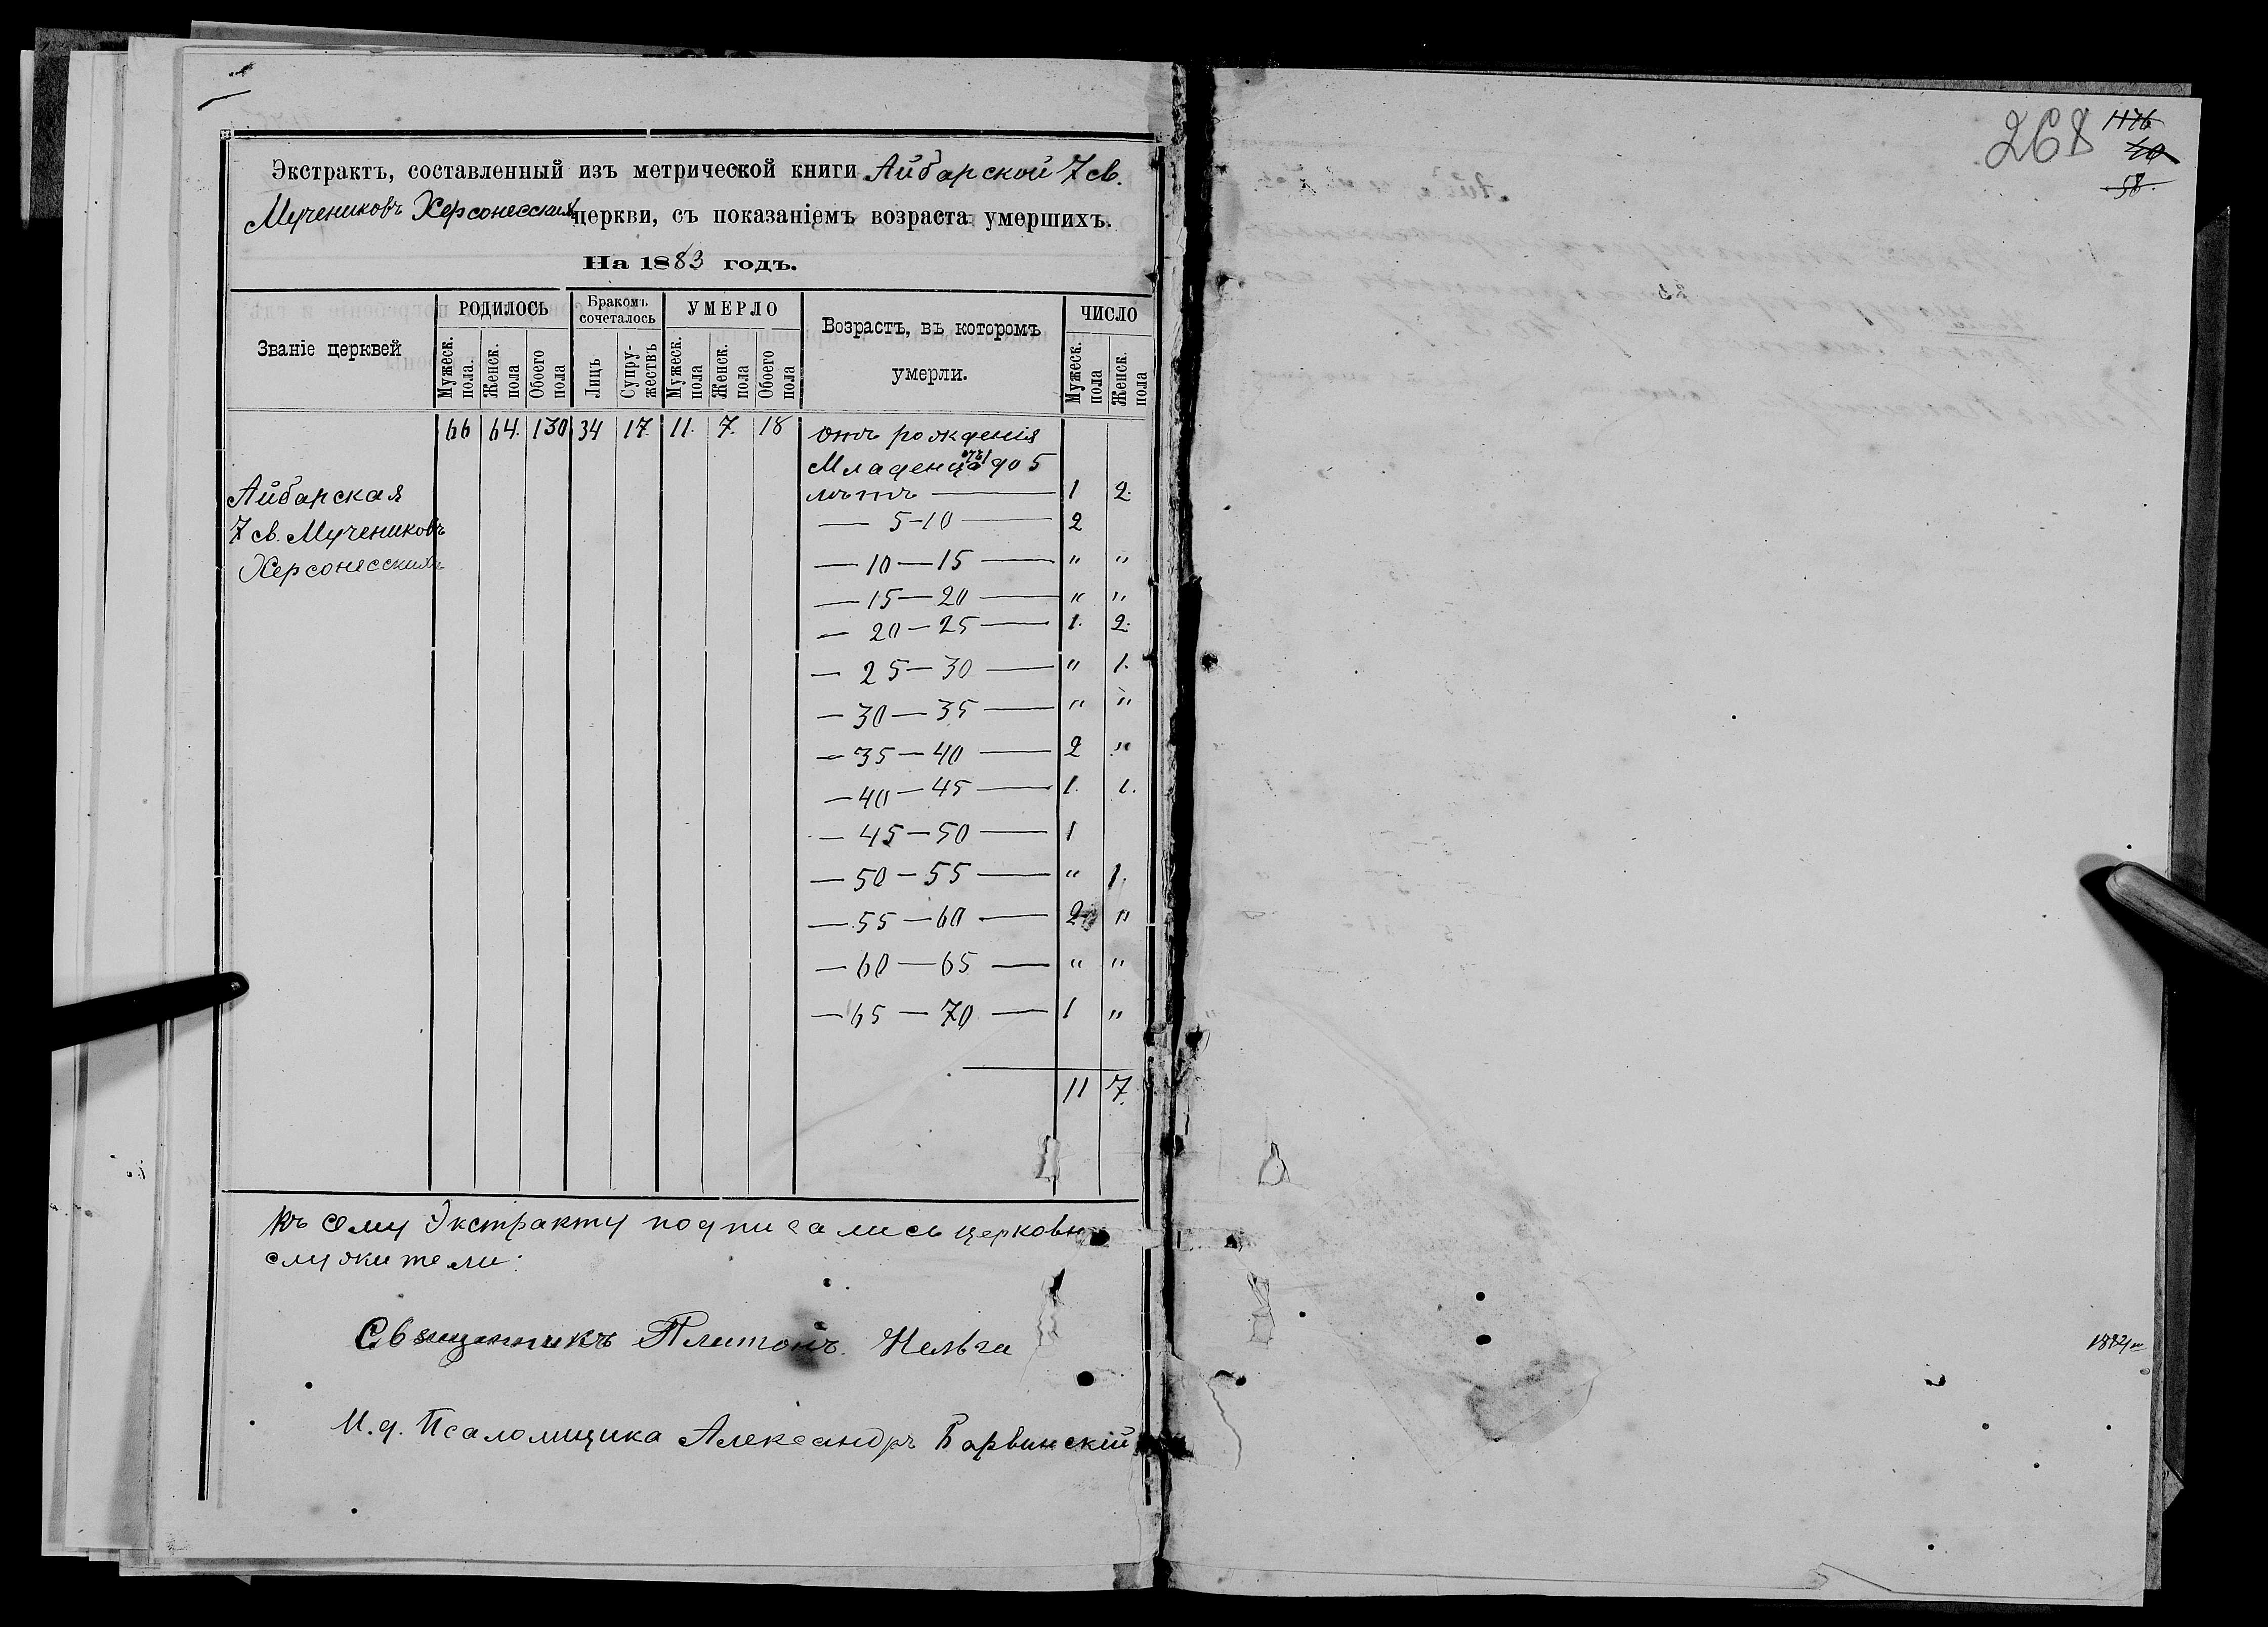 Экстрактъ, составленный изъ метрической книги Айбарской 7 св.
Мучениковъ Херсонесскихъ церкви, съ показаніемъ возраста умершихъ.
На 1883 годъ.
Званіе церквей
РОДИЛОСЬ
Бракомъ сочеталось
УМЕРЛО
Возрастъ, въ которомъ умерли.
ЧИСЛО
Мужеск. пола.
Женск. пола
Обоего пола
Лицъ
Супру-жествъ
Мужеск. пола
Женск. пола
Обоего пола
Мужеск. пола
Женск. пола
66 64. 130 34 17. 11. 7. 18 отъ рожденія
Младенца до 5
Айбарская лѣтъ — 1 2.
7 св. Мучениковъ — 5-10 — 2
Херсонесскихъ — 10 — 15 — " "
— 15 — 20 — " "
— 20 — 25 — 1. 2.
— 25 — 30 — " 1.
— 30 — 35 — " "
— 35 — 40 — 2 "
— 40 — 45 — 1. 1.
— 45 — 50 — 1
— 50 — 55 — " 1.
— 55 — 60 — 2 "
— 60 — 65 — " "
— 65 — 70 — 1 "
11 7.
Къ сему Экстракту подписались церковно
служители:
Священникъ Платонъ
И. д. Псаломщика Александръ Варвинскій
268
1176
40
58.